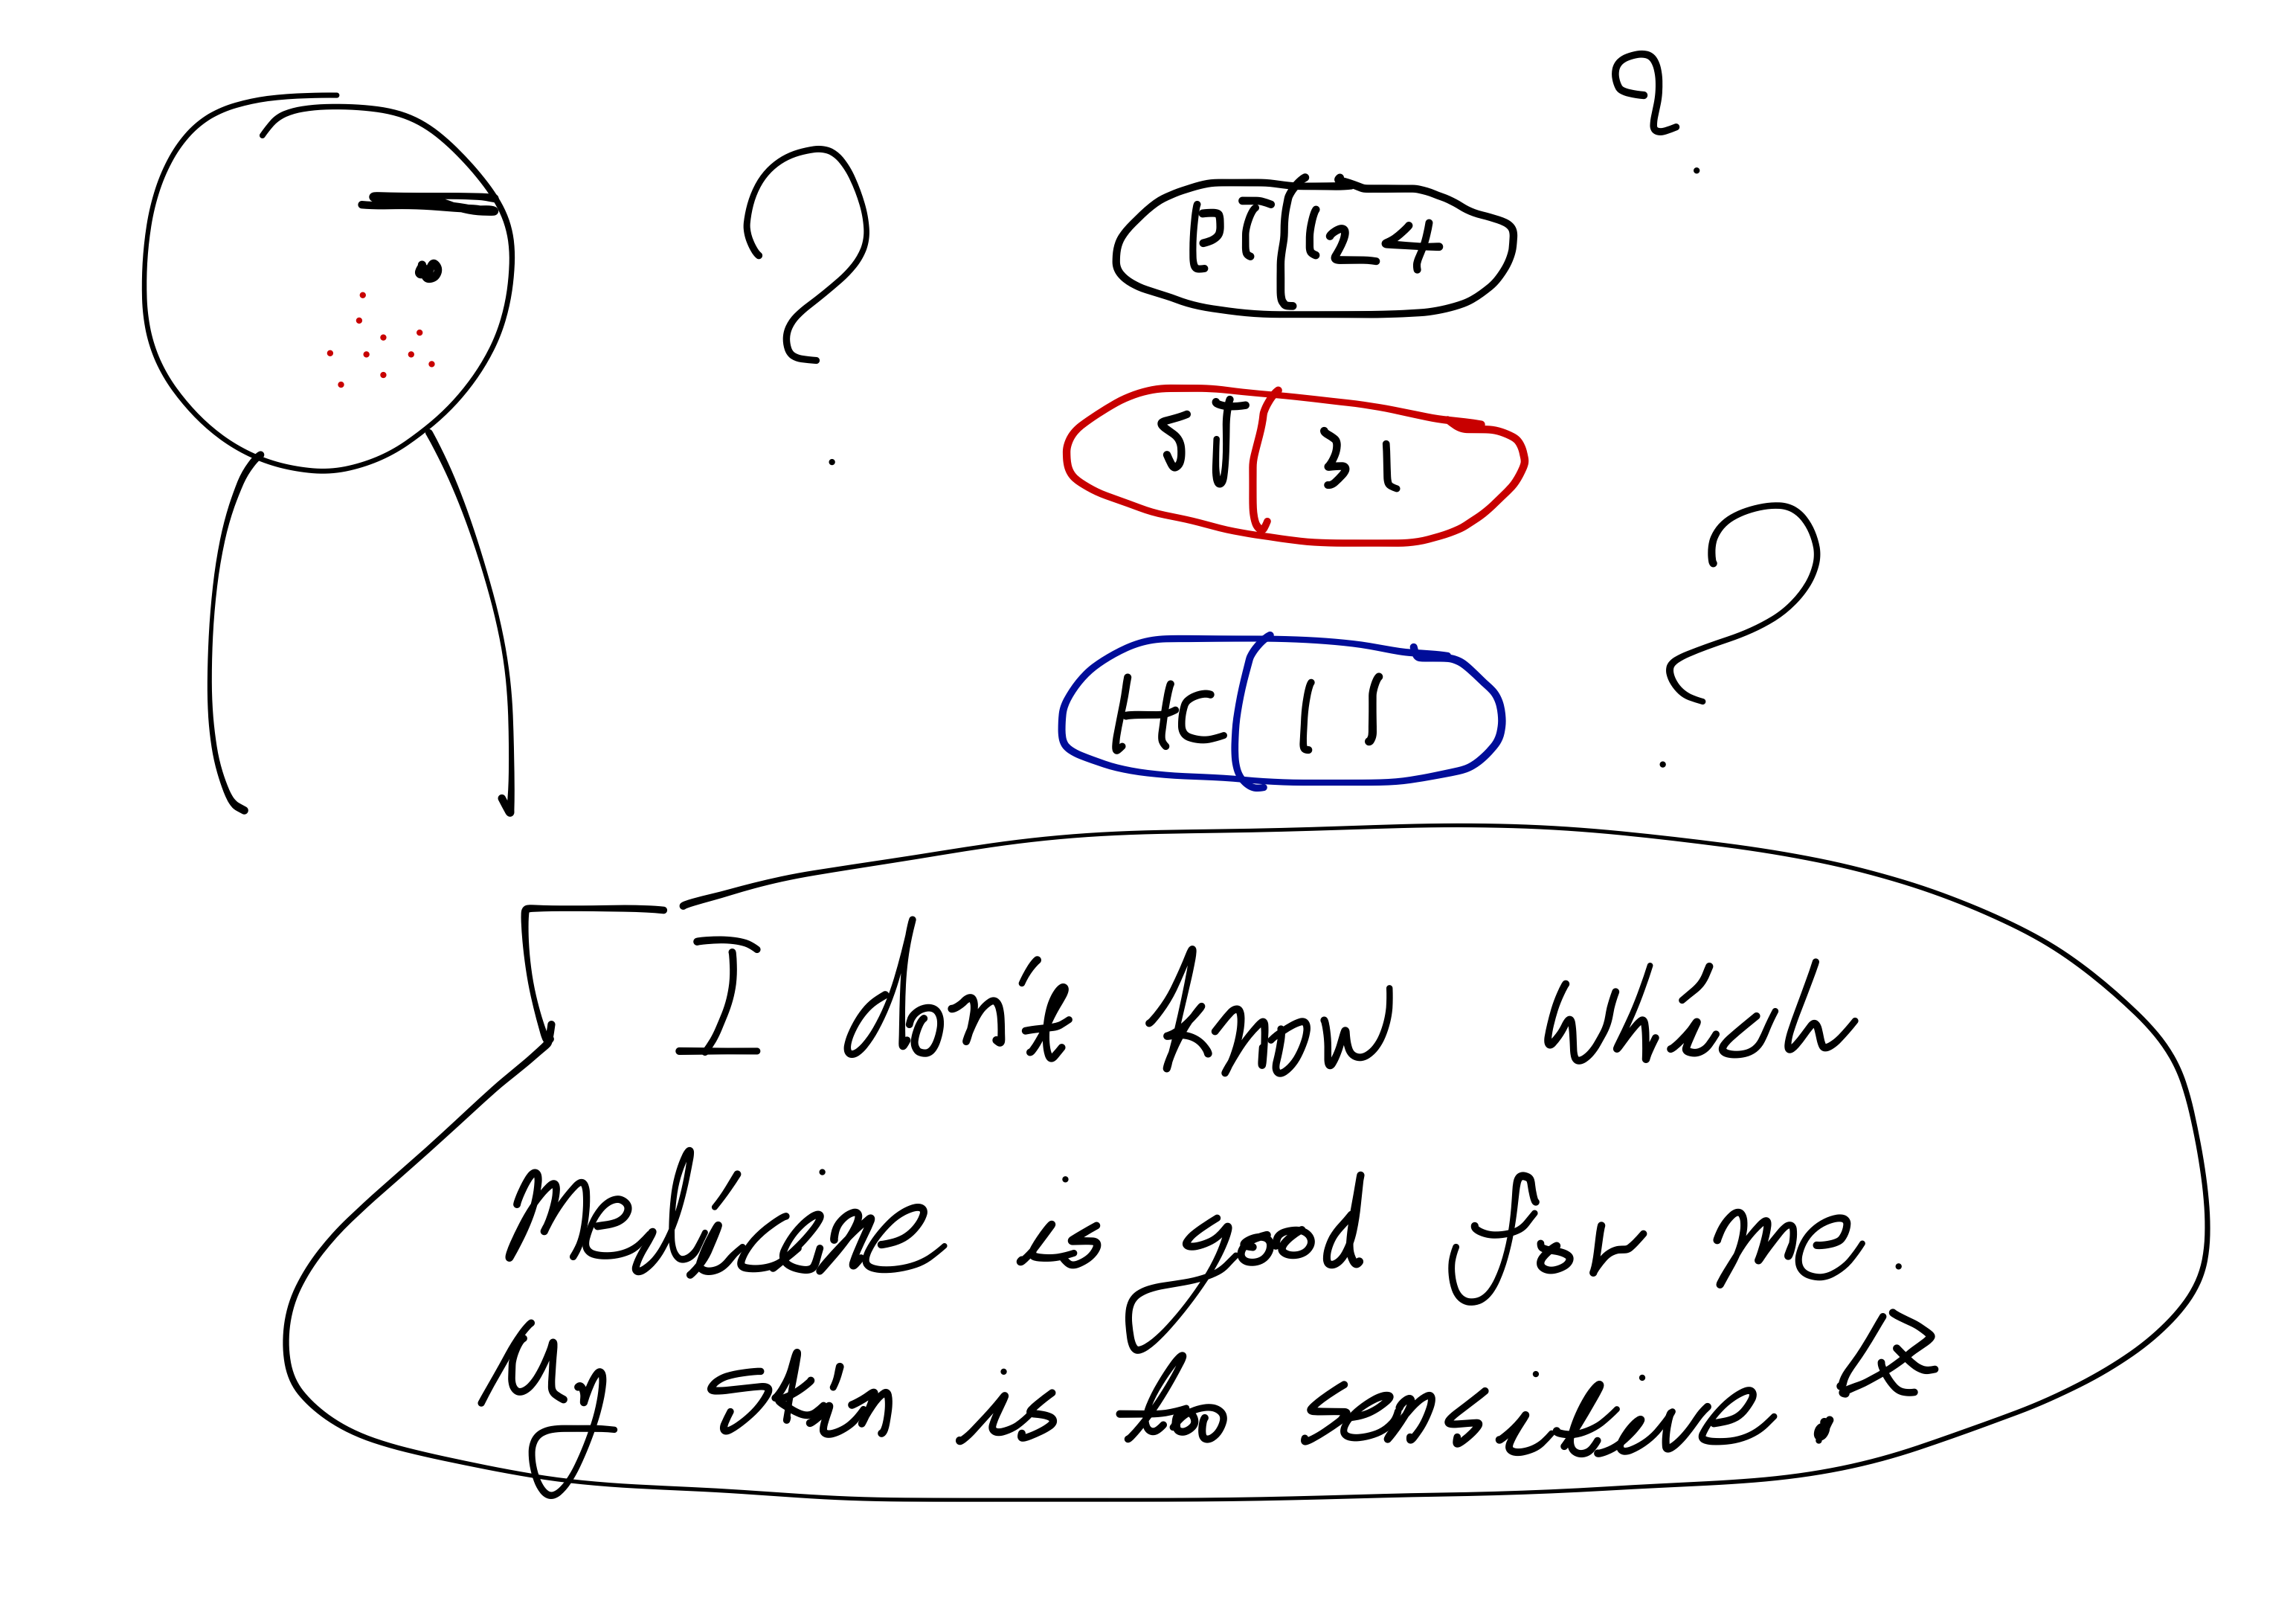 PT 124
31
HC 11
I don't know which
Medicine is good for me.
My skin is too sensitive!